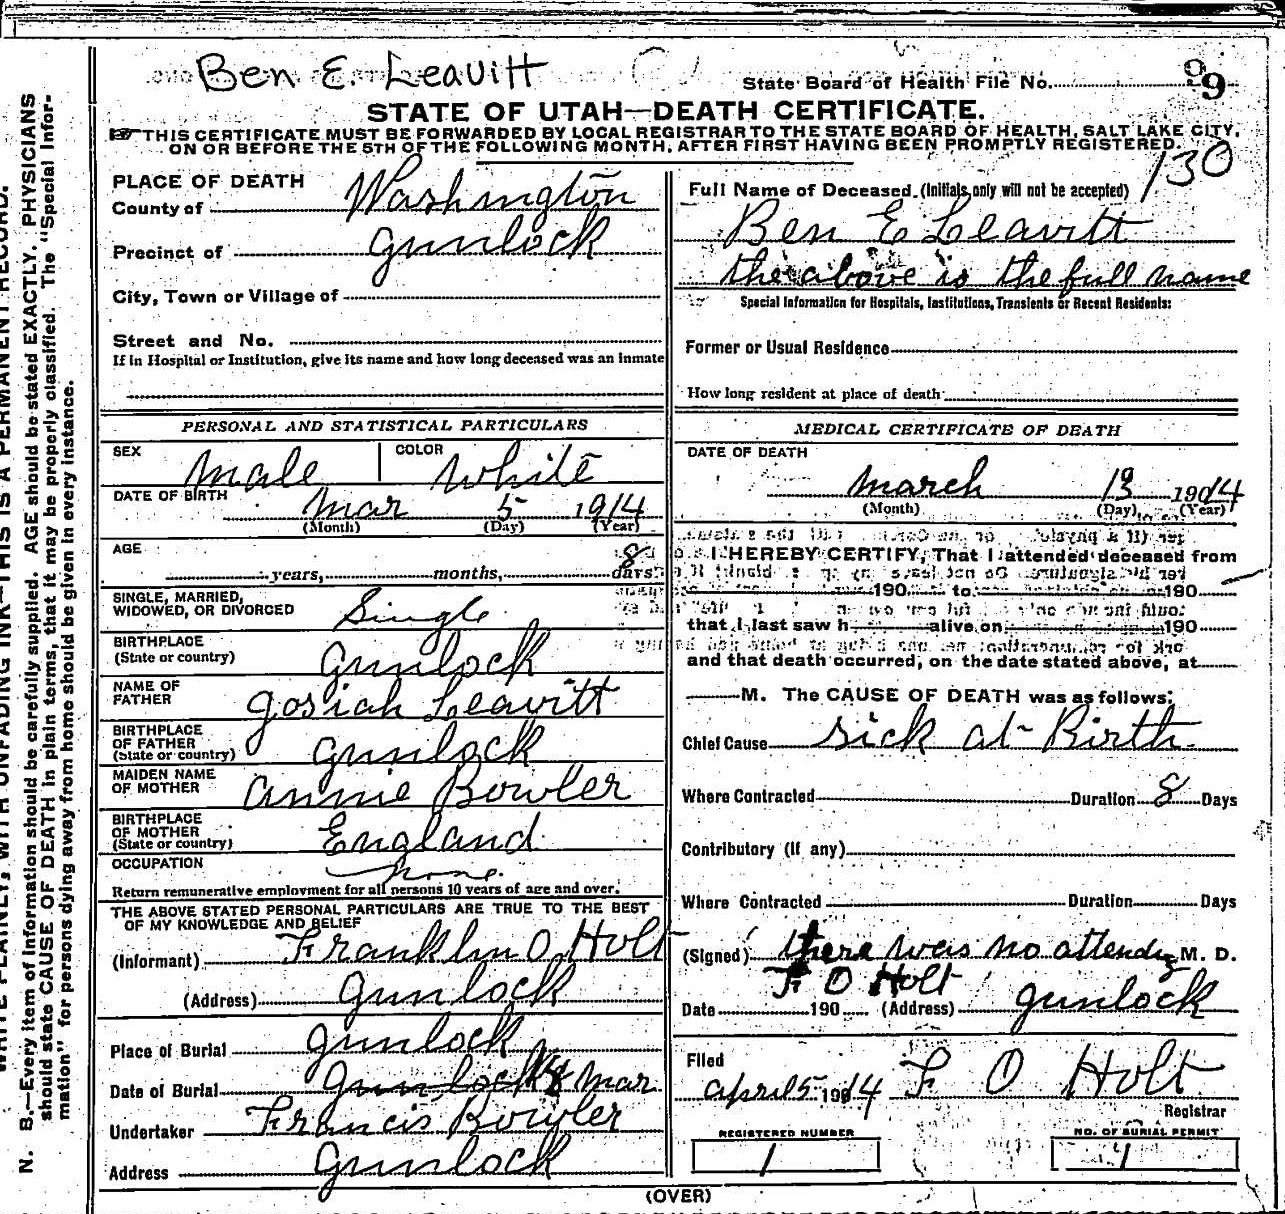 Ben E. Leavitt
State Board of Health File No. 99
STATE OF UTAH—DEATH CERTIFICATE.
THIS CERTIFICATE MUST BE FORWARDED BY LOCAL REGISTRAR TO THE STATE BOARD OF HEALTH, SALT LAKE CITY,
ON OR BEFORE THE 5TH OF THE FOLLOWING MONTH, AFTER FIRST HAVING BEEN PROMPTLY REGISTERED.
130
PLACE OF DEATH
County of Washington
Precinct of Gunlock
City, Town or Village of
Street and No.
If in Hospital or Institution, give its name and how long deceased was an inmate
Full Name of Deceased (Initials only will not be accepted)
Ben E Leavitt
the above is the full name
Special Information for Hospitals, Institutions, Transients or Recent Residents:
Former or Usual Residence
How long resident at place of death
PERSONAL AND STATISTICAL PARTICULARS
SEX male COLOR white
DATE OF BIRTH Mar 5 1914
(Month) (Day) (Year)
AGE years, months, 8 days
SINGLE, MARRIED,
WIDOWED, OR DIVORCED Single
BIRTHPLACE
(State or country) Gunlock
NAME OF
FATHER Josiah Leavitt
BIRTHPLACE
OF FATHER
(State or country) Gunlock
MAIDEN NAME
OF MOTHER Annie Bowler
BIRTHPLACE
OF MOTHER
(State or country) England
OCCUPATION none
Return remunerative employment for all persons 10 years of age and over.
THE ABOVE STATED PERSONAL PARTICULARS ARE TRUE TO THE BEST
OF MY KNOWLEDGE AND BELIEF
(Informant) Franklin O Holt
(Address) Gunlock
Place of Burial Gunlock
Date of Burial Gunlock 14 Mar
Undertaker Francis Bowler
Address Gunlock
MEDICAL CERTIFICATE OF DEATH
DATE OF DEATH
March 13 1914
(Month) (Day) (Year)
I HEREBY CERTIFY, That I attended deceased from
190 to 190
that I last saw h alive on 190
and that death occurred, on the date stated above, at
M. The CAUSE OF DEATH was as follows:
Chief Cause sick at Birth
Where Contracted Duration 8 Days
Contributory (If any)
Where Contracted Duration Days
(Signed) there was no attendg M. D.
F O Holt
Date 190 (Address) Gunlock
Filed
April 5 1914 F O Holt
Registrar
REGISTERED NUMBER
1
NO. OF BURIAL PERMIT
1
(OVER)
WRITE PLAINLY, WITH UNFADING INK—THIS IS A PERMANENT RECORD.
N. B.—Every item of information should be carefully supplied. AGE should be stated EXACTLY. PHYSICIANS
should state CAUSE OF DEATH in plain terms, that it may be properly classified. The "Special Infor-
mation" for persons dying away from home should be given in every instance.